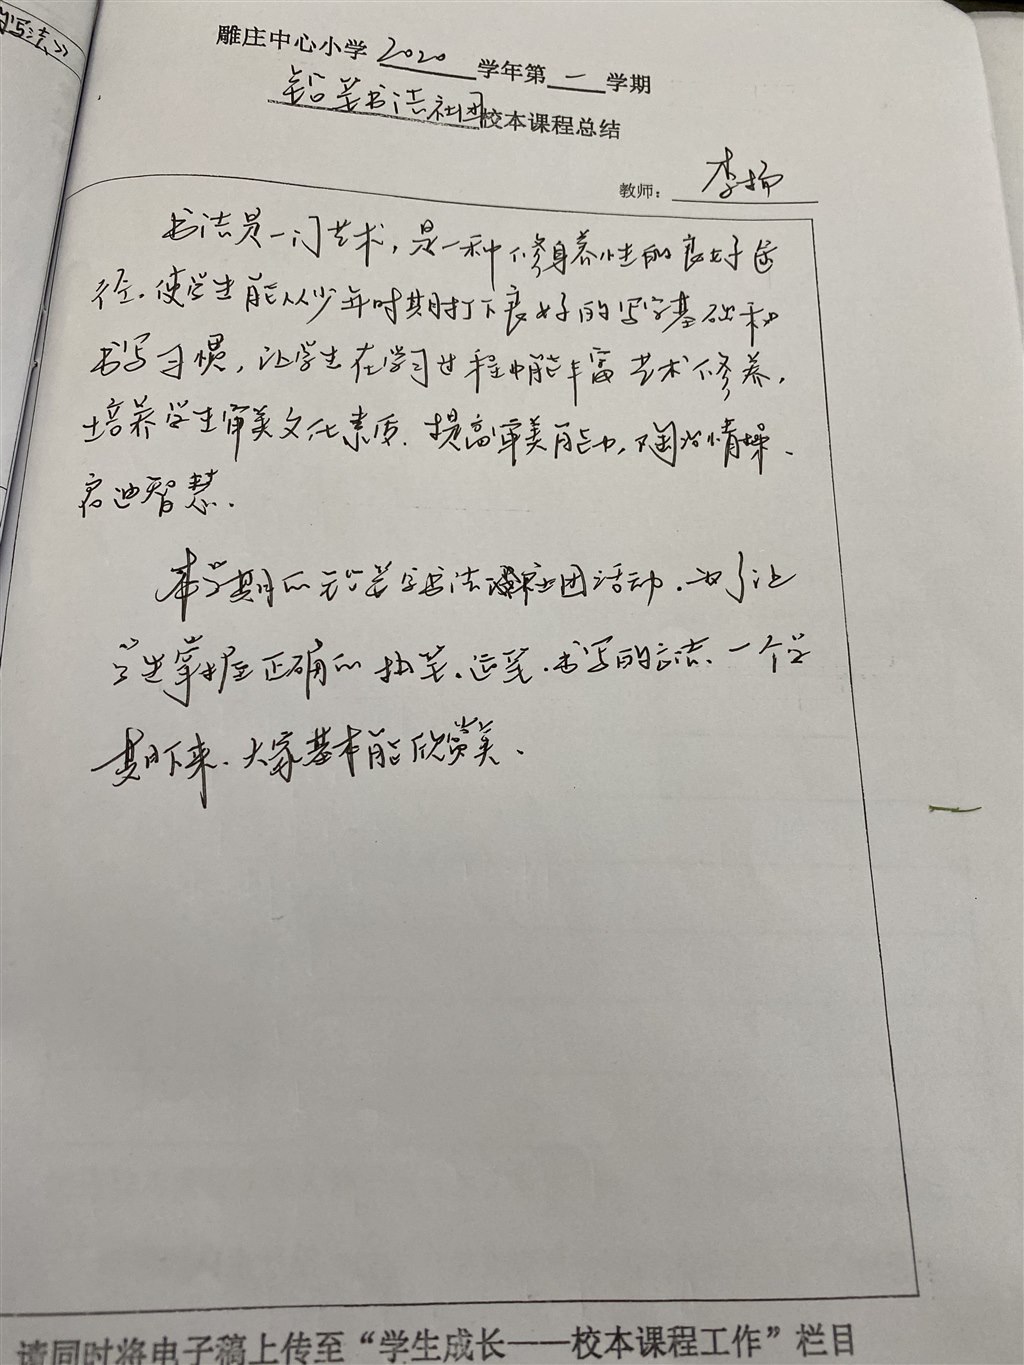 写法》
雕庄中心小学 2020 学年第 一 学期
铅笔书法社团校本课程总结
教师： 李扬
书法是一门艺术，是一种修身养性的良好途
径。使学生能从少年时期打下良好的写字基础和
书写习惯，让学生在学习过程中能丰富艺术修养，
培养学生审美文化素质．提高审美能力，陶冶情操、
启迪智慧．
本学期的铅笔字书法社团活动．为了让
学生掌握正确的执笔、运笔、书写的方法、一个学
期下来．大家基本能欣赏美．
请同时将电子稿上传至“学生成长——校本课程工作”栏目